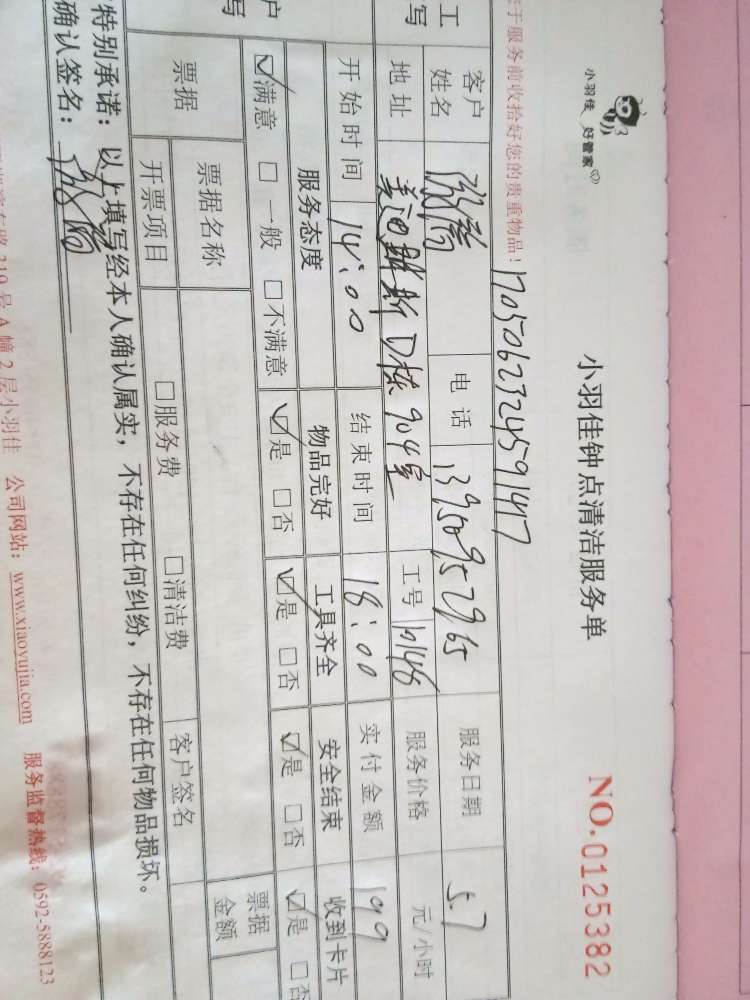 小羽佳 好管家
小羽佳钟点清洁服务单
NO.0125382
于服务前收拾好您的贵重物品！
1705062324591417
工
写
客户姓名 电话 13950952965 服务日期 5.7
地址 D栋904室 工号 服务价格 元/小时
开始时间 14:00 结束时间 18:00 实付金额 199
户
写
服务态度 物品完好 工具齐全 安全结束 收到卡片
☑满意 □一般 □不满意 ☑是 □否 ☑是 □否 ☑是 □否 ☑是 □否
票据 票据名称 票据金额
开票项目 □服务费 □清洁费 客户签名
特别承诺：以上填写经本人确认属实，不存在任何纠纷，不存在任何物品损坏。
确认签名：
310号A幢2层小羽佳 公司网站：www.xiaoyujia.com 服务监督热线：0592-5888123